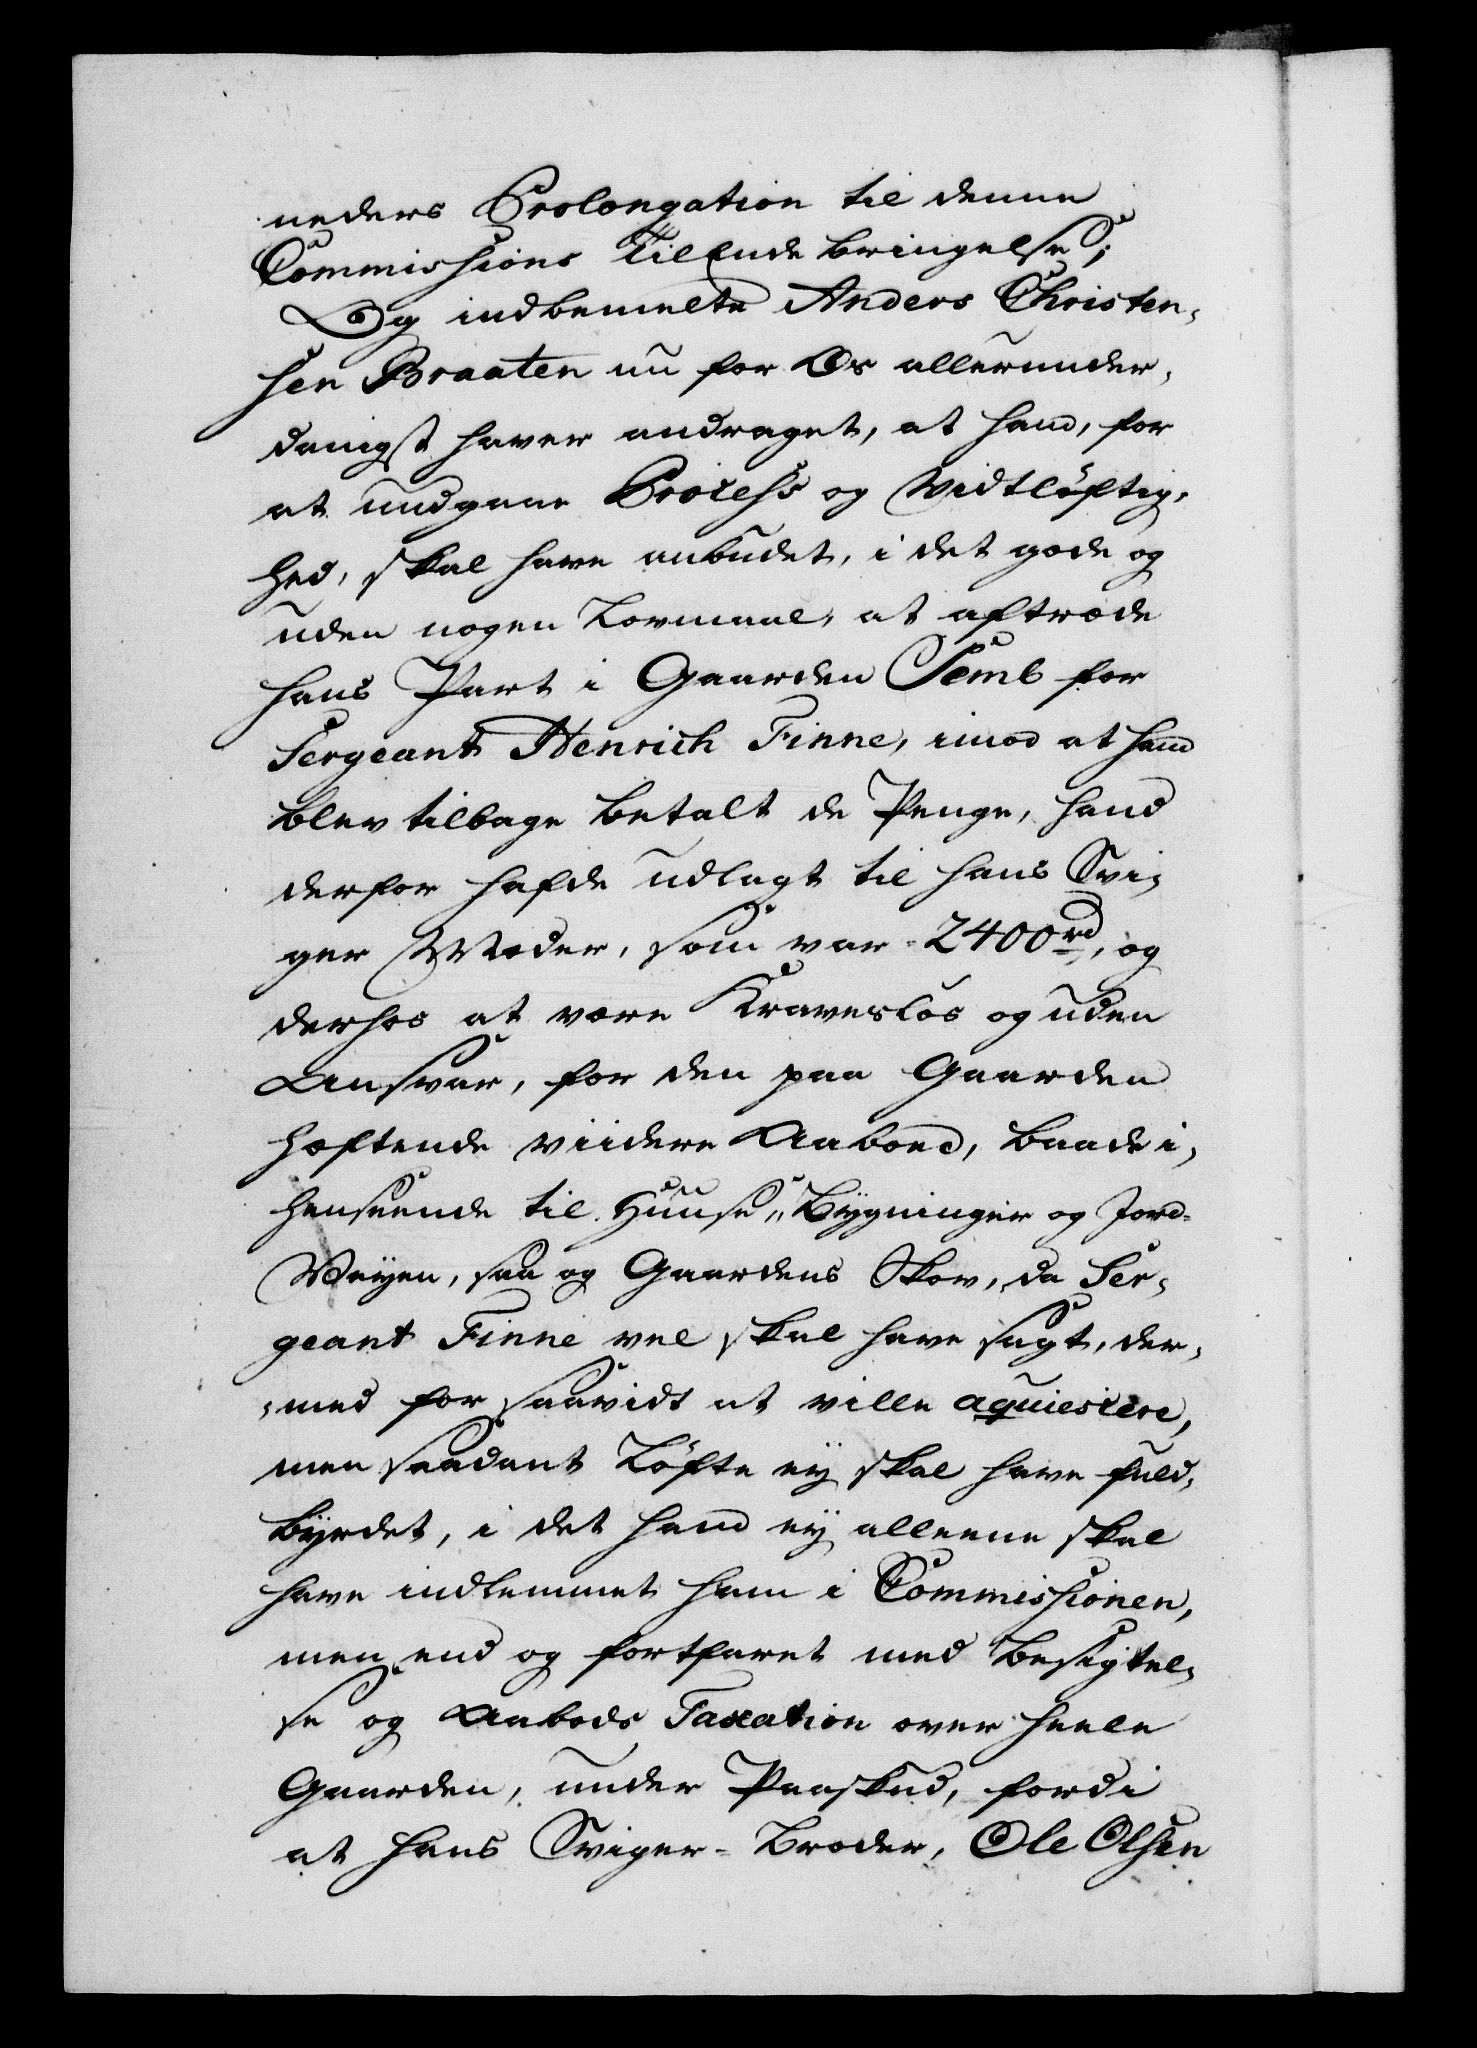 neders Prolongation til denne
Commissions TilEnde bringelse;
Og indbemelte Anders Christen-
sen Braaten nu for Os allerunder-
danigst haver andraget, at hand, for
at undgaae Process og Vidtløftig-
hed, skal have anbudet, i det gode og
uden nogen Lovmaal, at aftræde
hans Part i Gaarden Semb for
Sergeant Henrich Finne, imod at hand
blev tilbage betalt de Penge, hand
derfor hafde udlagt til hans Svi-
ger Moder, som var 2400 rd, og
derhos at være Kravesløs og uden
Ansvar, for den paa Gaarden
hæftende viidere Aaboed, baade i-
henseende til Huuse, Bygninger og Jord-
Veyen, saa og Gaardens Skov, da Ser-
geant Finne vel skal have sagt, der-
-med for saavidt at ville aquiescere,
men saadant Løfte ey skal have fuld-
byrdet, i det hand ey alleene skal
have indlemmet ham i Commissionen,
men end og fortfaret med Besigtel-
se og Aabods Taxation over heele
Gaarden, under Paaskud, fordi
at hans Sviger-Broder, Ole Olsen